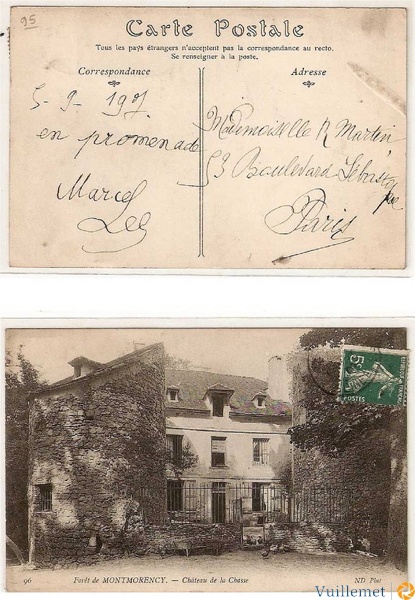 95
Carte Postale
Tous les pays étrangers n'acceptent pas la correspondance au recto.
Se renseigner à la poste.
Correspondance
Adresse
5-9-1907
en promenade
Marcel
Mademoiselle R Martin
53 Boulevard Sébasto
pol
Paris
5c
POSTES
96
Forêt de MONTMORENCY. — Château de la Chasse
ND Phot
Vuillemet